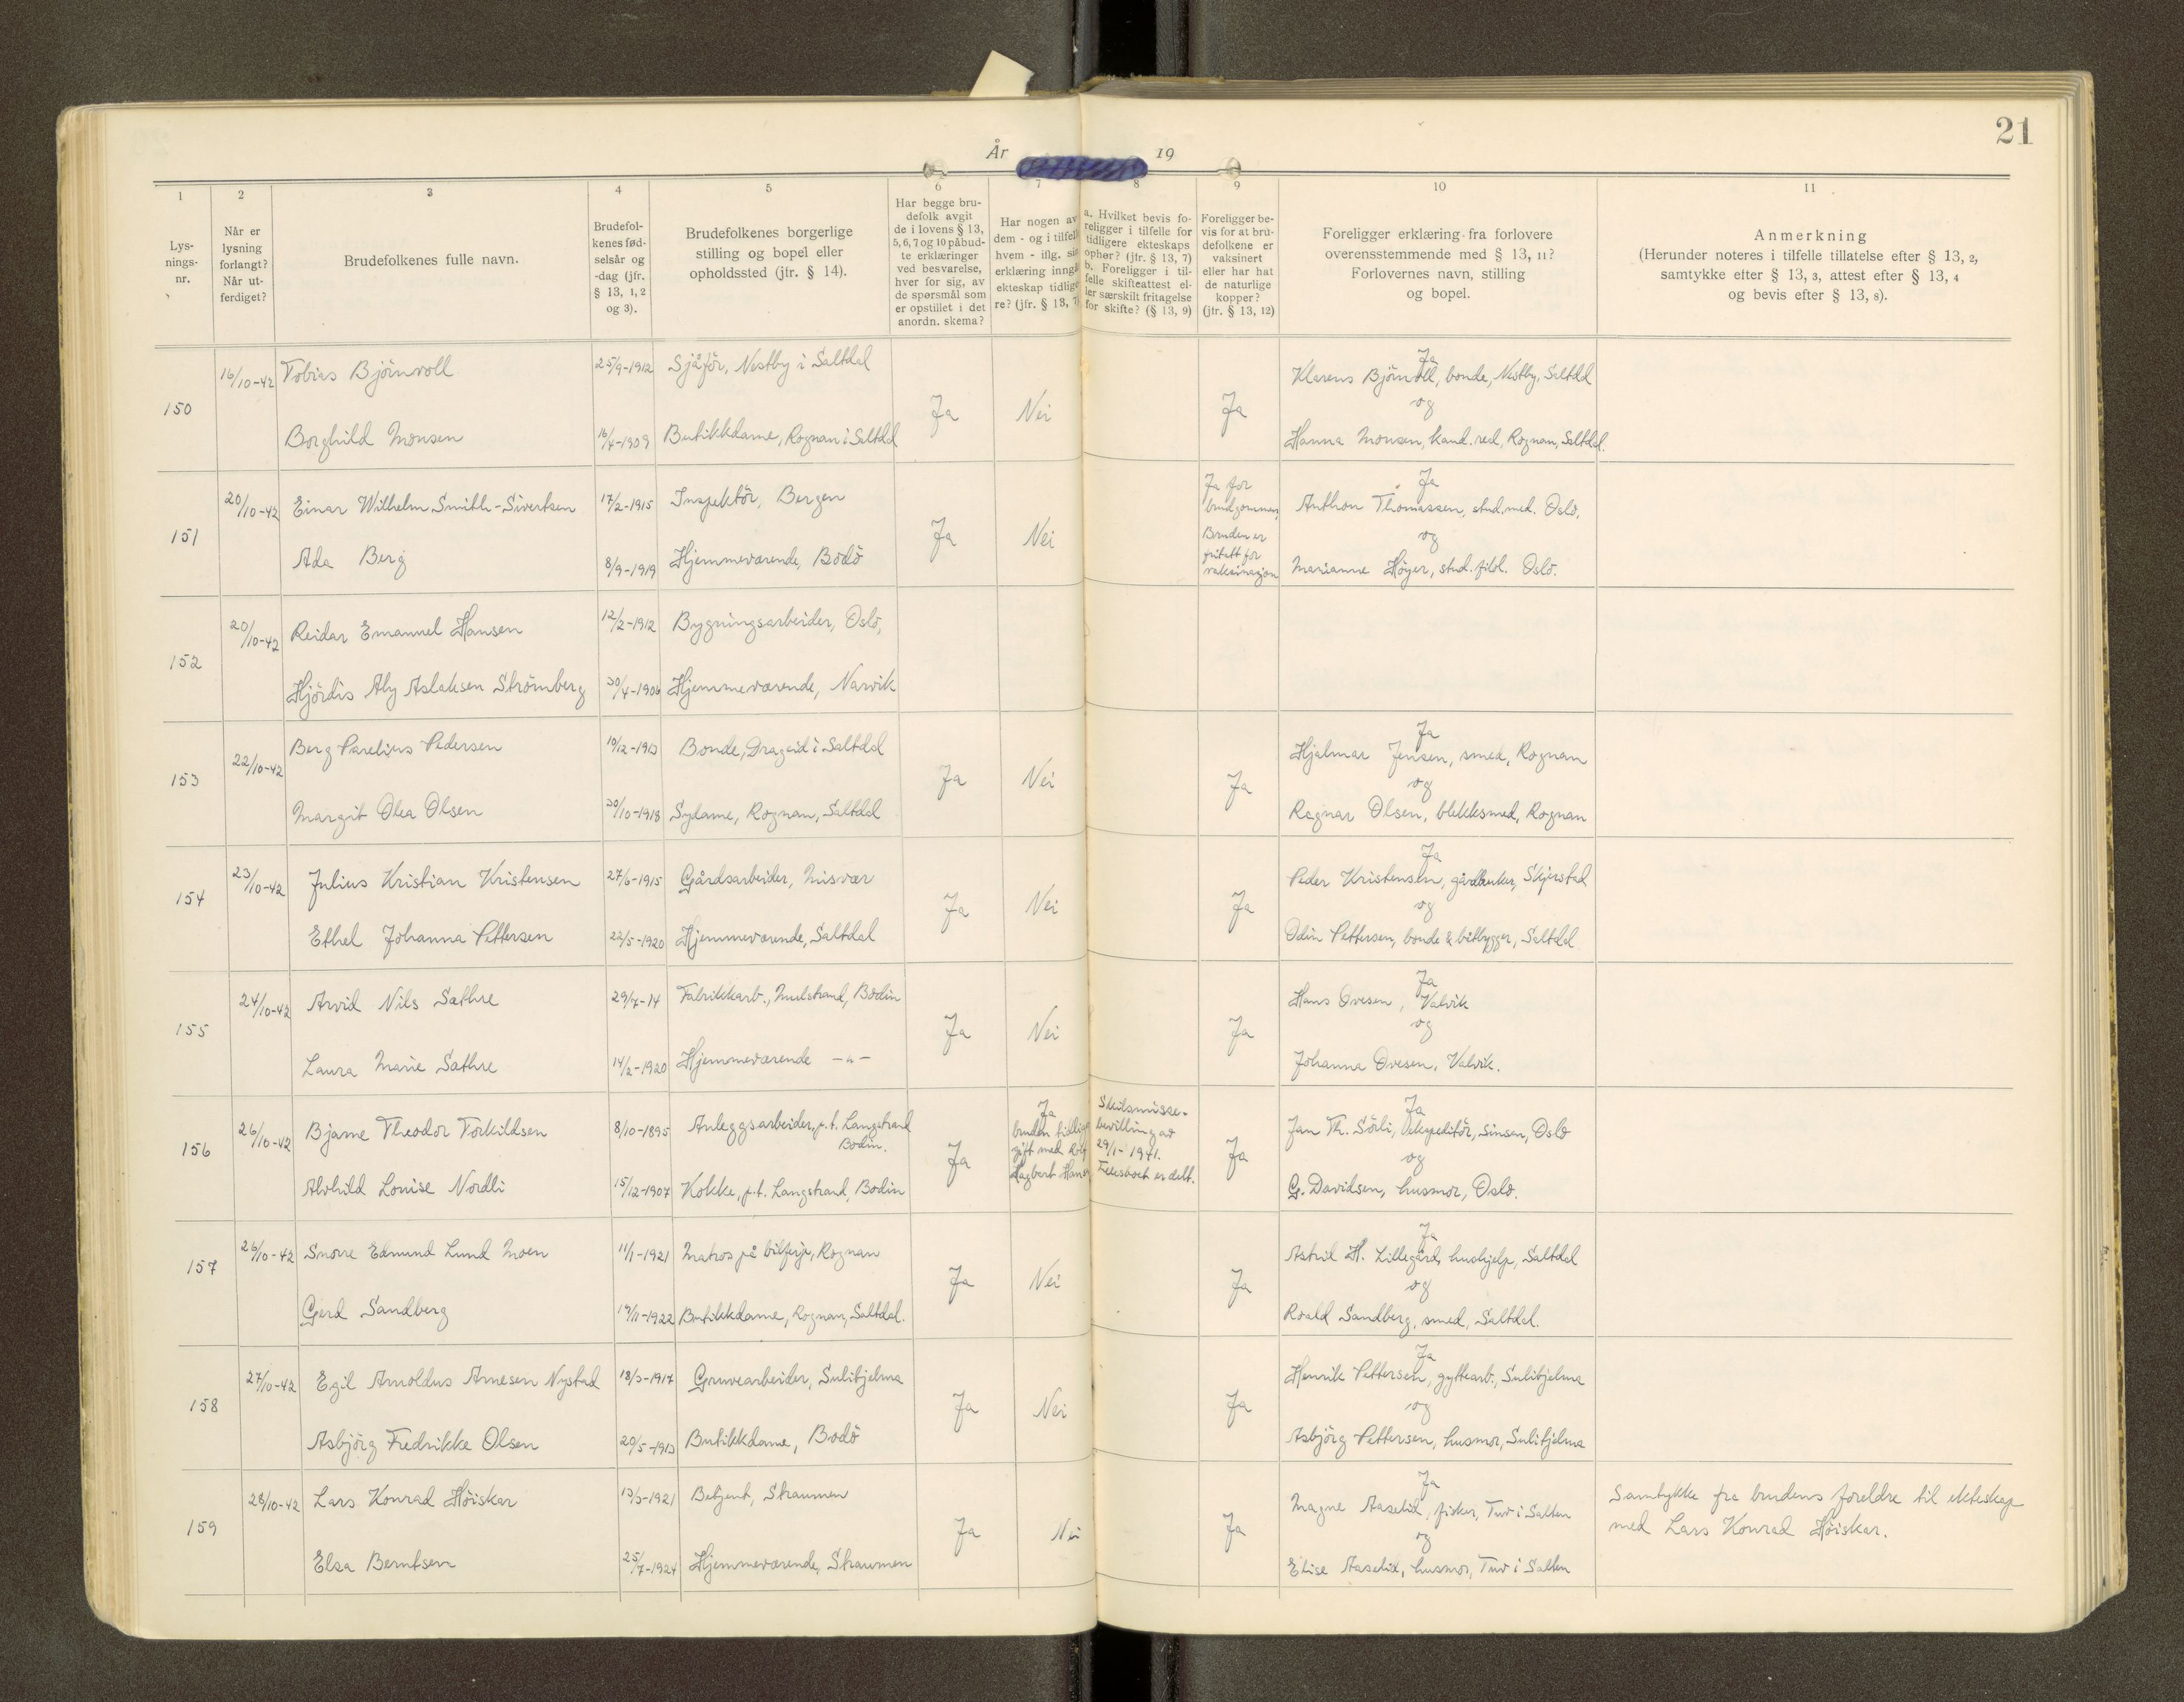 21
År 19
1
2
3
4
5
6
7
8
9
10
11
Lys-
nings-
nr.
Når er
lysning
forlangt?
Når ut-
ferdiget?
Brudefolkenes fulle navn.
Brudefol-
kenes fød-
selsår og
-dag (jfr.
§ 13, 1, 2
og 3).
Brudefolkenes borgerlige
stilling og bopel eller
opholdssted (jfr. § 14).
Har begge bru-
defolk avgit
de i lovens § 13,
5, 6, 7 og 10 påbud-
te erklæringer
ved besvarelse,
hver for sig, av
de spørsmål som
er opstillet i det
anordn. skema?
Har nogen av
dem - og i tilfelle
hvem - iflg. sin
erklæring inngå
ekteskap tidlige
re? (jfr. § 13, 7)
a. Hvilket bevis fo-
religger i tilfelle for
tidligere ekteskaps
ophør? (jfr. § 13, 7)
b. Foreligger i til-
felle skifteattest el-
ler særskilt fritagelse
for skifte? (§ 13, 9)
Foreligger be-
vis for at bru-
defolkene er
vaksinert
eller har hat
de naturlige
kopper?
(jfr. § 13, 12)
Foreligger erklæring fra forlovere
overensstemmende med § 13, 11?
Forlovernes navn, stilling
og bopel.
Anmerkning
(Herunder noteres i tilfelle tillatelse efter § 13, 2,
samtykke efter § 13, 3, attest efter § 13, 4
og bevis efter § 13, 8).
150
16/10-42 Tobias Björnvoll 25/9-1912 Sjåför, Nestby i Saltdal
Borghild Monsen 16/4-1909 Butikkdame, Rognan i Saltdal
Ja Nei Ja
Ja
Klarens Björnvoll, bonde, Nestby, Saltdal
og
Hanna Monsen, kand. real, Rognan, Saltdal.
151
20/10-42 Einar Wilhelm Smith-Sivertsen 17/2-1915 Inspektör, Bergen
Ada Berg 8/9-1919 Hjemmeværende, Bodö
Ja Nei
Ja for
brudgommen,
Bruden er
fritatt for
vaksinasjon
Ja
Anthon Thomassen, stud. med. Oslo.
og
Marianne Höyer, stud. filol. Oslo.
152
20/10-42 Reidar Emanuel Hansen 12/2-1912 Bygningsarbeider, Oslo,
Hjördis Aly Aslaksen Strömberg 30/4-1906 Hjemmeværende, Narvik
153
22/10-42 Berg Parelius Pedersen 10/12-1913 Bonde, Drageid i Saltdal
Margit Olea Olsen 30/10-1918 Sydame, Rognan, Saltdal
Ja Nei Ja
Ja
Hjalmar Jensen, smed, Rognan
og
Ragnar Olsen, blikksmed, Rognan
154
23/10-42 Julius Kristian Kristensen 27/6-1915 Gårdsarbeider, Misvær
Ethel Johanna Pettersen 22/5-1920 Hjemmeværende, Saltdal
Ja Nei Ja
Ja
Peder Kristensen, gårdbruker, Skjerstad
og
Odin Pettersen, bonde & båtbygger, Saltdal
155
24/10-42 Arvid Nils Sæthre 29/4-14 Fabrikkarb., Mulstrand, Bodin
Laura Marie Sæthre 14/2-1920 Hjemmeværende -"-
Ja Nei Ja
Ja
Hans Ovesen, Valvik
og
Johanna Ovesen, Valvik.
156
26/10-42 Bjarne Theodor Torkildsen 8/10-1895 Anleggsarbeider, p.t. Langstrand
Bodin.
Alvhild Louise Nordli 15/12-1907 Kokke, p.t. Langstrand, Bodin
Ja
Ja
bruden
gift med
Dagbert
Skilsmisse-
bevilling av
29/1-1941.
Fellesboet er delt.
Ja
Ja
Jan Th. Sörli, ekspeditör, Sinsen, Oslo
og
G. Davidsen, husmor, Oslo.
157
26/10-42 Snorre Edmund Lund Moen 11/1-1921 Matros på bilferje, Rognan
Gerd Sandberg 19/11-1922 Butikkdame, Rognan, Saltdal.
Ja Nei Ja
Ja
Astrid H. Lillegård, hushjelp, Saltdal
og
Roald Sandberg, smed, Saltdal.
158
27/10-42 Egil Arnoldus Arnesen Nystad 18/3-1917 Gruvearbeider, Sulitjelma
Asbjörg Fredrikke Olsen 20/5-1913 Butikkdame, Bodö
Ja Nei Ja
Ja
Henrik Pettersen, gyttearb., Sulitjelma
og
Asbjörg Pettersen, husmor, Sulitjelma
159
28/10-42 Lars Konrad Höiskar 13/3-1921 Betjent, Straumen
Elsa Berntsen 25/7-1924 Hjemmeværende, Straumen
Ja Nei Ja
Ja
Magne Aaselid, fisker, Tuv i Salten
og
Elise Aaselid, husmor, Tuv i Salten
Samtykke fra brudens foreldre til ekteskap
med Lars Konrad Höiskar.